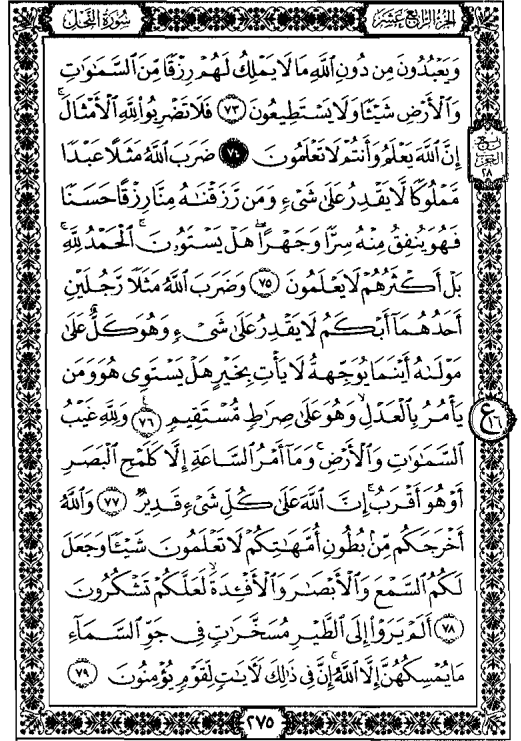 سُورَةُ النَّحْلِ
الجُزْءُ الرَّابِعَ عَشَرَ
وَيَعْبُدُونَ مِن دُونِ ٱللَّهِ مَا لَا يَمْلِكُ لَهُمْ رِزْقًا مِّنَ ٱلسَّمَٰوَٰتِ
وَٱلْأَرْضِ شَيْـًٔا وَلَا يَسْتَطِيعُونَ ٧٣ فَلَا تَضْرِبُوا۟ لِلَّهِ ٱلْأَمْثَالَ ۚ
إِنَّ ٱللَّهَ يَعْلَمُ وَأَنتُمْ لَا تَعْلَمُونَ ٧٤ ضَرَبَ ٱللَّهُ مَثَلًا عَبْدًا
مَّمْلُوكًا لَّا يَقْدِرُ عَلَىٰ شَىْءٍ وَمَن رَّزَقْنَٰهُ مِنَّا رِزْقًا حَسَنًا
فَهُوَ يُنفِقُ مِنْهُ سِرًّا وَجَهْرًا ۖ هَلْ يَسْتَوُۥنَ ۚ ٱلْحَمْدُ لِلَّهِ ۚ
بَلْ أَكْثَرُهُمْ لَا يَعْلَمُونَ ٧٥ وَضَرَبَ ٱللَّهُ مَثَلًا رَّجُلَيْنِ
أَحَدُهُمَآ أَبْكَمُ لَا يَقْدِرُ عَلَىٰ شَىْءٍ وَهُوَ كَلٌّ عَلَىٰ
مَوْلَىٰهُ أَيْنَمَا يُوَجِّههُّ لَا يَأْتِ بِخَيْرٍ هَلْ يَسْتَوِى هُوَ وَمَن
يَأْمُرُ بِٱلْعَدْلِ ۙ وَهُوَ عَلَىٰ صِرَٰطٍ مُّسْتَقِيمٍ ٧٦ وَلِلَّهِ غَيْبُ
ٱلسَّمَٰوَٰتِ وَٱلْأَرْضِ ۚ وَمَآ أَمْرُ ٱلسَّاعَةِ إِلَّا كَلَمْحِ ٱلْبَصَرِ
أَوْ هُوَ أَقْرَبُ ۚ إِنَّ ٱللَّهَ عَلَىٰ كُلِّ شَىْءٍ قَدِيرٌ ٧٧ وَٱللَّهُ
أَخْرَجَكُم مِّنۢ بُطُونِ أُمَّهَٰتِكُمْ لَا تَعْلَمُونَ شَيْـًٔا وَجَعَلَ
لَكُمُ ٱلسَّمْعَ وَٱلْأَبْصَٰرَ وَٱلْأَفْـِٔدَةَ ۙ لَعَلَّكُمْ تَشْكُرُونَ
٧٨ أَلَمْ يَرَوْا۟ إِلَى ٱلطَّيْرِ مُسَخَّرَٰتٍ فِى جَوِّ ٱلسَّمَآءِ
مَا يُمْسِكُهُنَّ إِلَّا ٱللَّهُ ۗ إِنَّ فِى ذَٰلِكَ لَءَايَٰتٍ لِّقَوْمٍ يُؤْمِنُونَ ٧٩
ربع
الحزب
٢٨
ع
١٦
٢٧٥